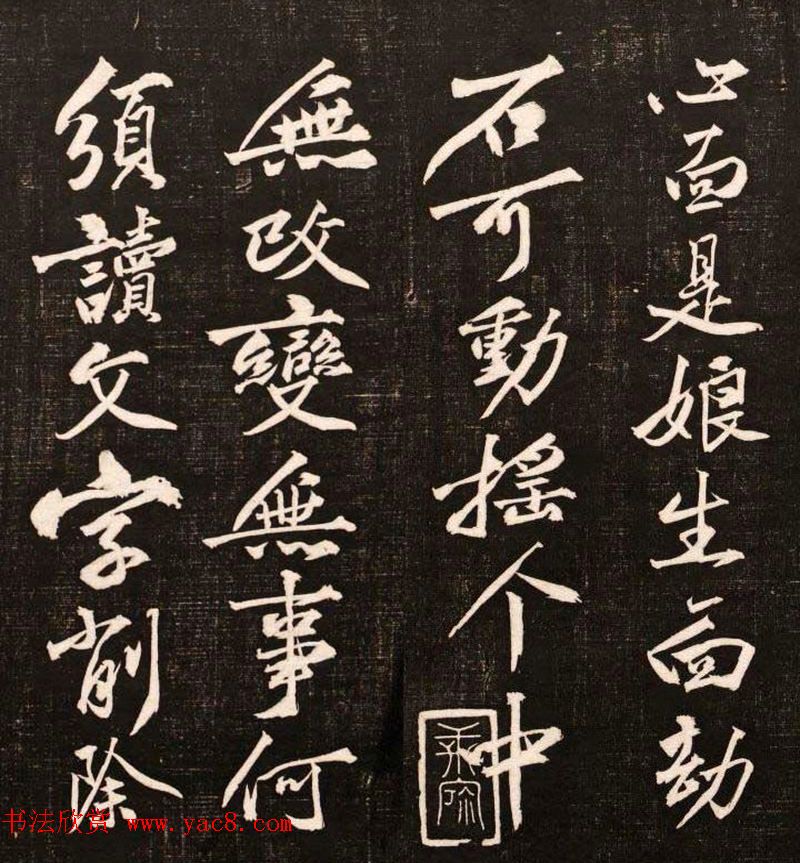 心面是娘生面劫
石可動搖个中
無改變無事何
須讀文字削除
书法欣赏 www.yac8.com